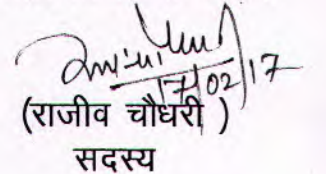 17/02/17
(राजीव चौधरी )
सदस्य